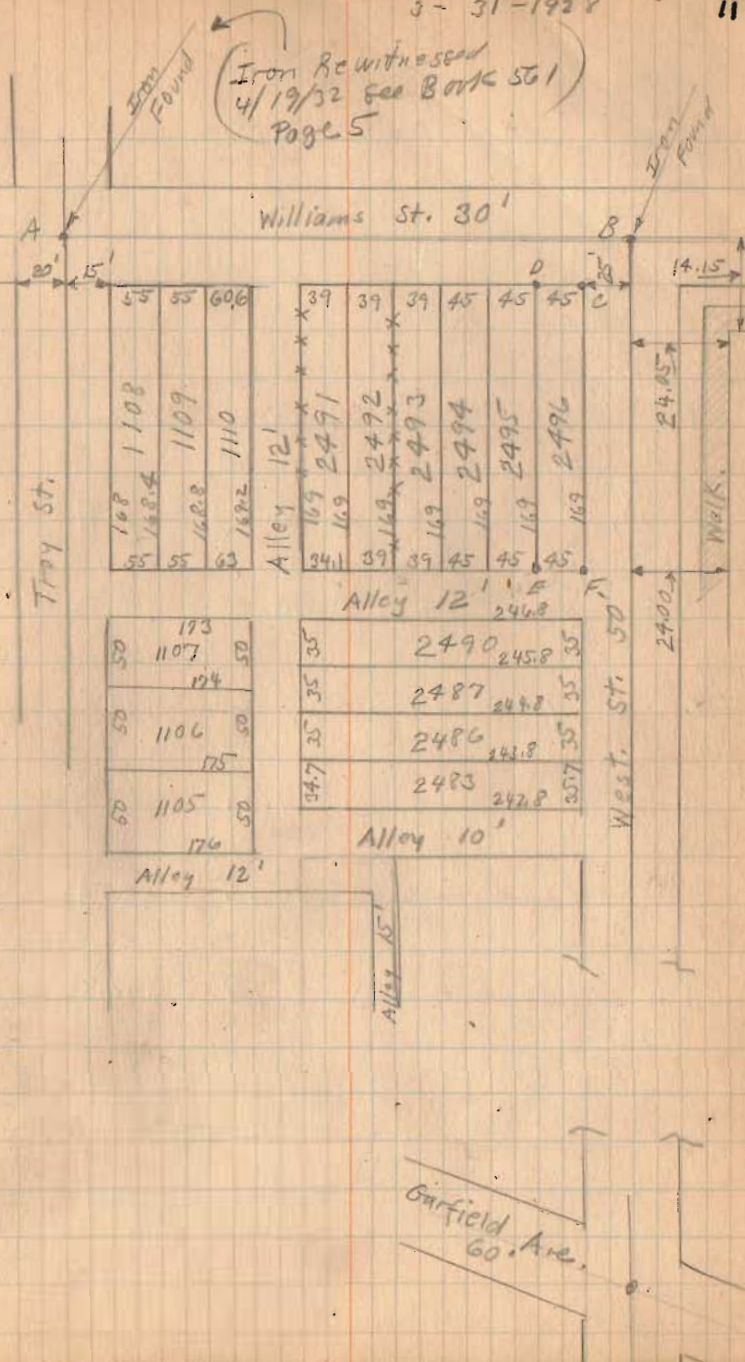 3 - 31 - 1928
11
Iron Found
(Iron Rewitnessed
4/19/32 see Book 561
Page 5)
Iron Found
Williams St. 30'
A
B
20'
15'
D
C
25'
14.15
55 55 60.6
39 39 39 45 45 45
24.05
1108 1109 1110
Alley 12'
2491 2492 2493 2494 2495 2496
168 168.4 168.8 169.2
169 169 169 169 169 169
Walk.
Troy St.
55 55 63
34.1 39 39 45 45 45
E
F
Alley 12'
246.8
24.00
West. St. 50'
173
50 1107 50
174
50 1106 50
175
50 1105 50
176
35 2490 245.8 35
35 2487 244.8 35
35 2486 243.8 35
34.7 2483 242.8 35.7
Alley 10'
Alley 12'
Alley 15'
Garfield
60. Ave.